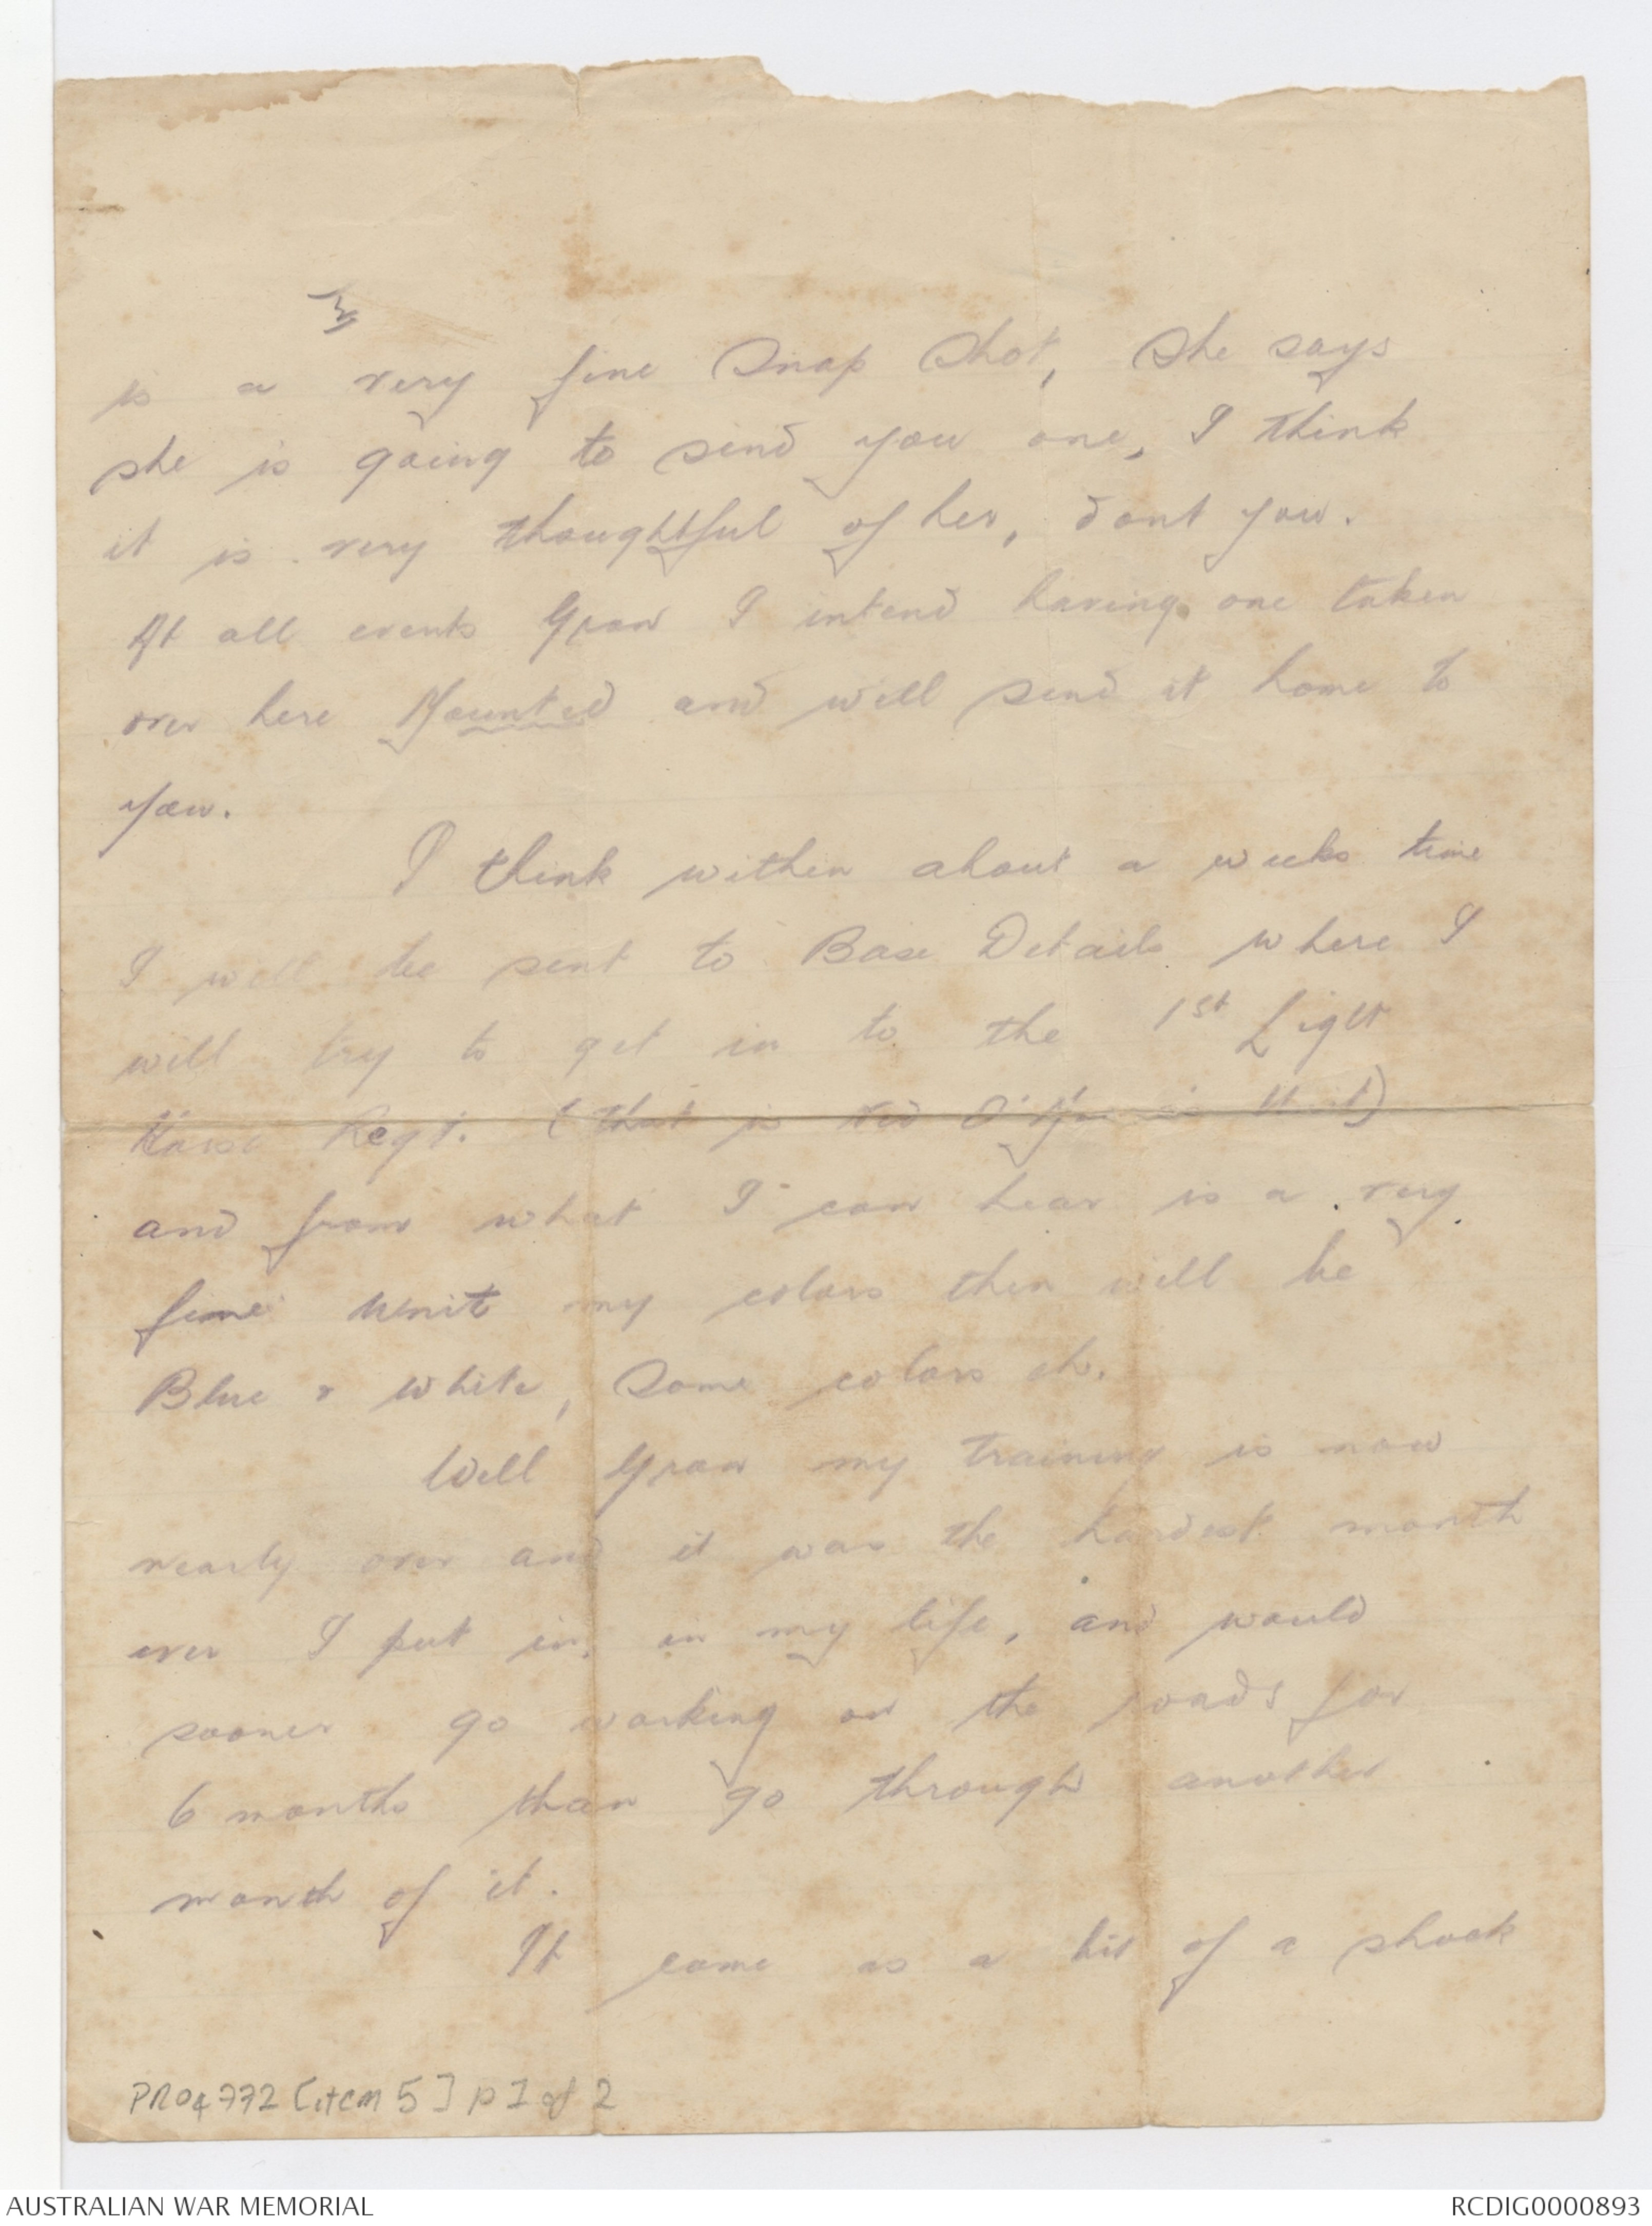 3
is a very fine Snap Shot, She says
she is going to send you one, I think
it is very thoughtful of her, dont you.
At all events Gran I intend having one taken
over here Mounted and will send it home to
you.
I think within about a weeks time
I will be sent to Base Details where I
will try to get in to the 1st Light
Horse Regt. (that is
and from what I can hear is a very
fine unit my colors then will be
Blue & white, Some colors eh.
Well Gran my training is now
nearly over and it was the hardest month
ever I put in, in my life, and would
sooner go working on the roads for
6 months than go through another
month of it.
It came as a bit of a shock
PR04772 [item 5] p 1 of 2
AUSTRALIAN WAR MEMORIAL
RCDIG0000893